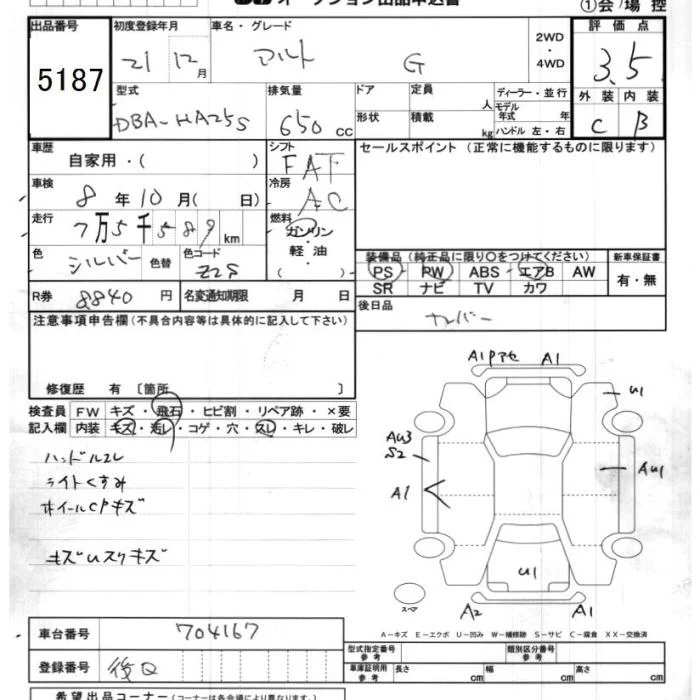 オークション出品申込書
①会場控
出品番号
5187
初度登録年月
21 12月
車名・グレード
アルト G
2WD
・
4WD
評価点
3.5
外装 内装
C B
型式
DBA-HA25S
排気量
650 CC
ドア
形状
定員 人
積載 kg
ディーラー・並行
モデル年式 年
ハンドル 左・右
車歴
自家用・( )
シフト
FAT
車検
8年10月( 日)
冷房
AC
走行
7万5千589km
燃料
ガソリン
・
軽油
( )
色
シルバー
色替
色コード
Z2S
セールスポイント (正常に機能するものに限ります)
装備品 (純正品に限り○をつけてください)
PS PW ABS エアB AW
SR ナビ TV カワ
新車保証書
有・無
R券 8840円
名変通知期限 月 日
後日品
注意事項申告欄(不具合内容等は具体的に記入して下さい)
修復歴 有 〔箇所 〕
検査員記入欄
FW キズ・飛石・ヒビ割・リペア跡・×要
内装 キズ・汚レ・コゲ・穴・スレ・キレ・破レ
ハンドルスレ
ライトくすみ
ホイールCPキズ
キズUスリキズ
A1Pアセ A1
U1
AU3
S2
A1
AU1
U1
スペア
A2 A1
A-キズ E-エクボ U-凹み W-補修跡 S-サビ C-腐食 XX-交換済
車台番号 704167
登録番号 後Q
型式指定番号 参考
類別区分番号 参考
車庫証明用 参考 長さ cm 幅 cm 高さ cm
希望出品コーナー(コーナーは各会場により異なります)